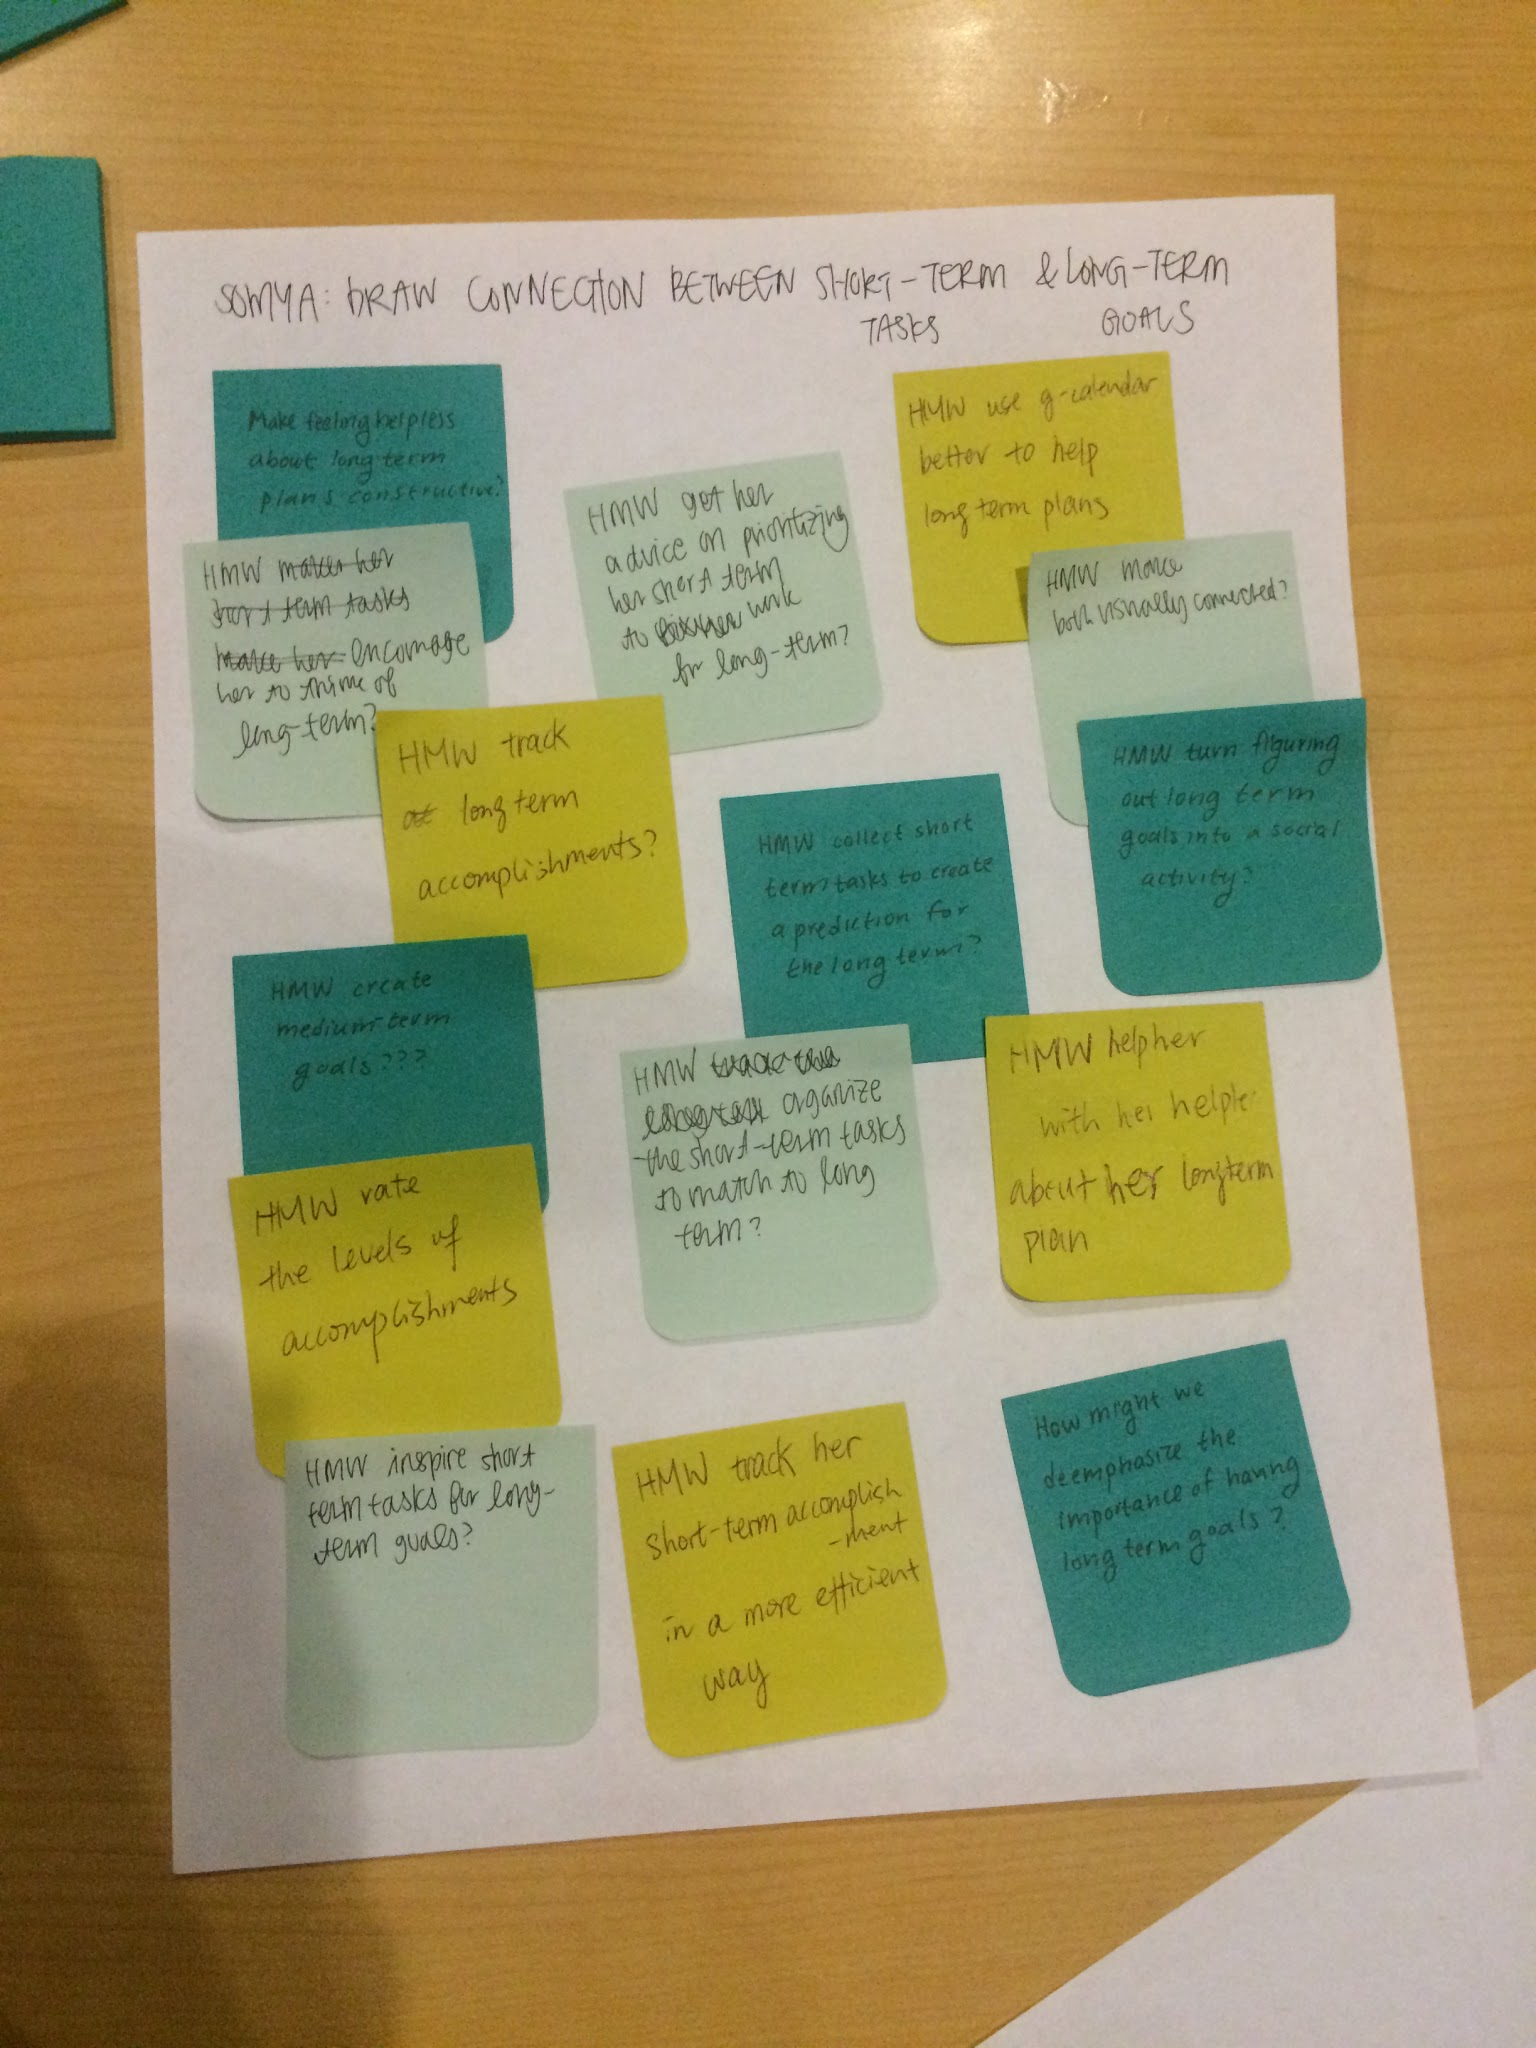 SOMYA: DRAW CONNECTION BETWEEN SHORT-TERM & LONG-TERM
TASKS GOALS
Make feeling helpless
about long term
plans constructive?
HMW makes her
short term tasks
make her encourage
her to think of
long-term?
HMW get her
advice on prioritizing
her short term
to work
for long-term?
HMW use g-calendar
better to help
long term plans
HMW make
both visually connected?
HMW track
long term
accomplishments?
HMW collect short
term tasks to create
a prediction for
the long term?
HMW turn figuring
out long term
goals into a social
activity?
HMW create
medium-term
goals???
HMW organize
the short-term tasks
to match to long
term?
HMW help her
with her
about her longterm
plan
HMW rate
the levels of
accomplishments
HMW inspire short
term tasks for long-
term goals?
HMW track her
short-term accomplish
-ment
in a more efficient
way
How might we
deemphasize the
importance of having
long term goals?